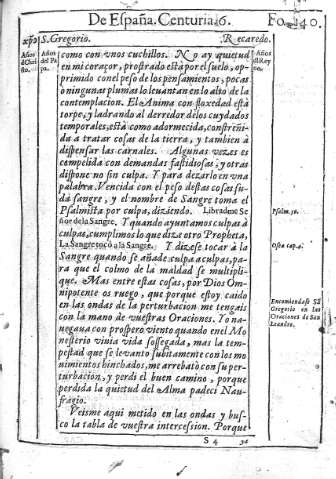 De España. Centuria 6. Fo. 140.
xpo S. Gregorio. Recaredo.
Años d Chri sto.
Años del Pa pa.
Años d Rey no.
como con vnos cuchillos. No ay quietud
en mi coraçon, prostrado està por el suelo, o-
primido con el peso de los pensamientos, pocas
o ningunas plumas lo leuantan en lo alto de la
contemplacion. El Anima con floxedad està
torpe, y ladrando al derredor de los cuydados
temporales, està como adormecida, constreñi-
da a tratar cosas de la tierra, y tambien à
dispensar las carnales. Algunas vezes es
compelida con demandas fastidiosas; y otras
dispone no sin culpa. Y para dezarlo en vna
palabra. Vencida con el peso destas cosas su-
da sangre, y el nombre de Sangre toma el
Psalmista por culpa, diziendo. Librademe Se
ñor de la Sangre. Y quando ayuntamos culpas à
culpas, cumplimos lo que dize otro Propheta,
La Sangre tocò a la Sangre. Y dizese tocar à la
Sangre quando se añade culpa a culpas, pa-
ra que el colmo de la maldad se multipli-
que. Mas entre estas cosas, por Dios Om-
nipotente os ruego, que porque estoy caido
en las ondas de la perturbacion me tengais
con la mano de vuestras Oraciones. Yo na-
uegaua con prospero viento quando en el Mo
nesterio viuia vida sossegada, mas la tem-
pestad que se leuanto subitamente con los mo
uimientos hinchados, me arrebatò con su per-
turbacion, y perdi el buen camino, porque
perdida la quietud del Alma padeci Nau-
fragio.
Veisme aqui metido en las ondas y bus-
co la tabla de vuestra intercession. Porque
Psalm. 50.
Osea cap. 4.
Encomiendase S.
Gregorio en las
Oraciones de San
Leandro.
S 4